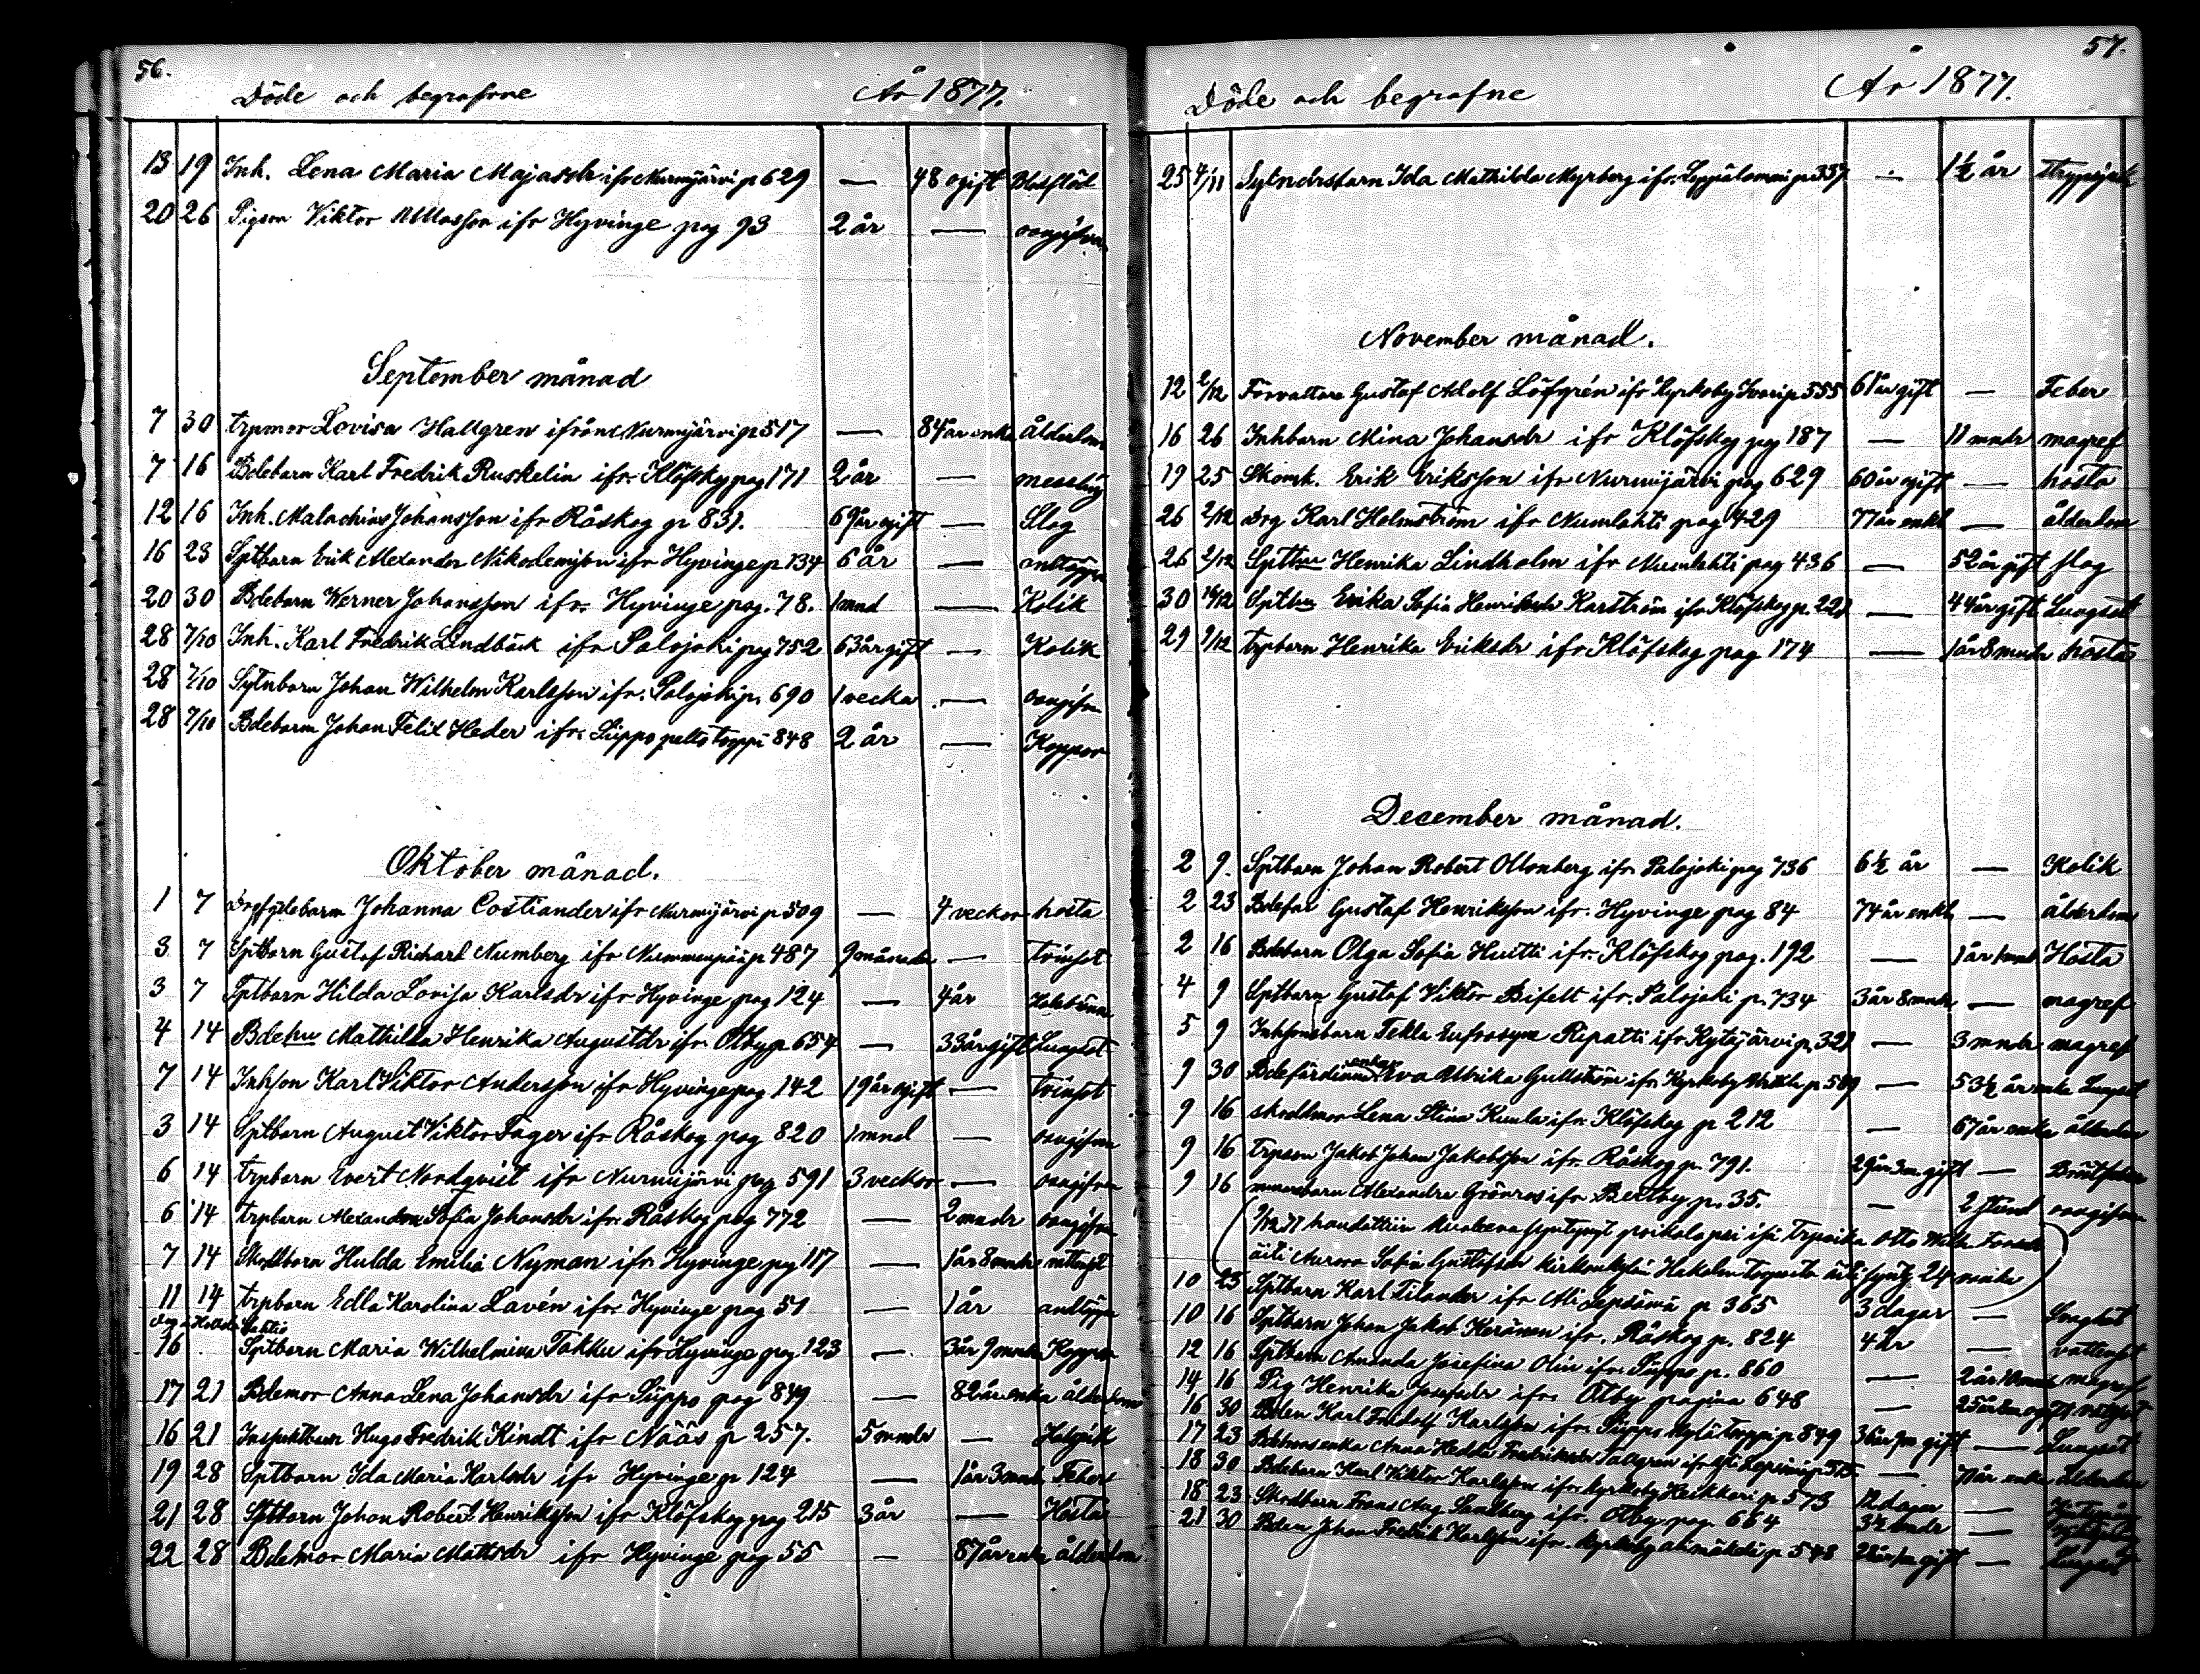 56.
Döde och begrafvne År 1877.
13 19 Inh. Lena Maria Majasdr ifr Nurmijärvi p 629 — 48 ogift Blodflöd
20 26 Pigson Viktor ifr Hyvinge pag 93 2 år — oangifven
September månad
7 30 trpmor Lovisa Hallgren ifrån Nurmijärvi p 517 — 84 år enka ålderdom
7 16 Bdebarn Karl Fredrik Ruskelin ifr. Klöfskog pag 171 2 år — messling
12 16 Inh. Malachias Johansson ifr Råskog p 831. 69 år ogift — Slag
16 23 Sptbarn Erik Alexander Nikodemsson ifr Hyvinge p 134 6 år — andtäppa
20 30 Bdebarn Werner Johansson ifr. Hyvinge pag. 78. 1 mnd — Kolik
28 7/10 Inh. Karl Fredrik Lindbäck ifr Palojoki pag 752 63 år gift — Kolik
28 7/10 Sytnbarn Johan Wilhelm Karlsson ifr. Palojoki p. 690 1 vecka — oangifven
28 7/10 Bdebarn Johan Felix Heder ifr. Siippo 848 2 år — Koppor
Oktober månad.
1 7 Johanna Costiander ifr Nurmijärvi p 509 — 4 veckor hosta
3 7 Sptbarn Gustaf Richard Numberg ifr Nummenpää p 487 9 månader — tvinsot
3 7 Sptbarn Hilda Lovisa Karlsdr ifr Hyvinge pag 124 — 4 år
4 14 Bdehu Mathilda Henrika Augustdr ifr Otby p. 654 — 33 år gift Lungsot
7 14 Inhson Karl Viktor Andersson ifr Hyvinge pag 142 19 år ogift — tvinsot
3 14 Sptbarn August Viktor Fager ifr Råskog pag 820 1 mnd — oangifven
6 14 trpbarn Evert Nordqvist ifr Nurmijärvi pag 591 3 veckor — oangifven
6 14 trpbarn Alexandra Sofia Johansdr ifr. Råskog pag 772 — 2 mndr oangifven
7 14 Skodbarn Hulda Emilia Nyman ifr. Hyvinge pag 117 — 1 år 8 mndr
11 14 trpbarn Edla Karolina Lavén ifr. Hyvinge pag 51 — 1 år andtäppa
16 Sptbarn Maria Wilhelmina Takku ifr Hyvinge pag 123 — 3 år 9 mndr Koppor
17 21 Bdemor Anna Lena Johansdr ifr Siippo pag 849 — 82 år enka ålderdom
16 21 Hugo Fredrik Kindt ifr Nääs p 257. 5 mndr —
19 28 Sptbarn Ida Maria Karlsdr ifr Hyvinge p 124 — 1 år 3 mndr Feber
21 28 Sptbarn Johan Robert Henriksson ifr Klöfskog pag 215 3 år — Hosta
22 28 Bdemor Maria Mattsdr ifr Hyvinge pag 55 — 87 år enka ålderdom
57.
Döde och begrafne År 1877.
25 4/11 Sytndrsbarn Ida Mathilda Myrberg ifr. p 337 — 1½ år
November månad.
12 2/12 Förvaltare Gustaf Adolf Löfgrén ifr Kyrkoby p 555 61 år gift — Feber
16 26 Inhbarn Mina Johansdr ifr Klöfskog pag 187 — 11 mndr magref
19 25 Skomk. Erik Eriksson ifr Nurmijärvi pag 629 60 år ogift — hosta
26 2/12 Drg Karl Holmström ifr Numlahti pag 429 77 år enkl — ålderdom
26 2/12 Spthu Henrika Lindholm ifr Numlahti pag 436 — 52 år gift slag
30 16/12 Spthu Erika Sofia Henriksdr Karström ifr Klöfskog p. 221 — 44 år gift Lungsot
29 9/12 trpbarn Henrika Eriksdr ifr Klöfskog pag 174 — 1 år 8 mndr hosta
December månad.
2 9. Sptbarn Johan Robert Ollonberg ifr. Palojoki pag 736 6½ år — Kolik
2 23 Bdefar Gustaf Henriksson ifr. Hyvinge pag 84 74 år enkl — ålderdom
2 16 Bdebarn Olga Sofia Huitti ifr. Klöfskog pag. 192 — 1 år 1 mnd Hosta
4 9 Sptbarn Gustaf Viktor Bifelt ifr. Palojoki p. 734 3 år 8 mndr — magref
5 9 Inhsonsbarn Tekla Eufrosyne Ripatti ifr Kytäjärvi p. 321 — 3 mndr magref
9 30 enkan Eva Ulrika Gullström ifr. Kyrkoby p 589 — 53½ år enka Lungsot
9 16 skodlmor Lena Stina Kumla ifr. Klöfskog p 212 — 67 år enka ålderdom
9 16 trpson Jakob Johan Jakobsson ifr. Råskog p. 791. 29 år 3 m gift —
9 16 Alexandra Grönroos ifr. Bertby p. 35. — 2 stund oangifven
haudattiin poikalapsi isä Otto Wilh.
äiti Aurora Sofia Gustafsson äiti synt. 24 vanha
10 23 Sptbarn Karl Tilander ifr Ali Lepsämä p 365 3 dagar —
10 16 Sptbarn Johan Jakob Keränen ifr. Råskog p. 824 4 år — vattensot
12 16 Sptbarn Amanda Josefina Olin ifr. Siippo p. 860 — 2 år magref
14 16 Pig Henrika Josefsdr ifr. Otby pagina 648 —
16 30 Bden Karl Fridolf Karlsson ifr. Siippo p 849 gift — Lungsot
17 23 enka Anna Hedda Fredriksdr Tallgren ifr — enka ålderdom
18 30 Bdebarn Karl Viktor Karlsson ifr. Kyrkoby Heikkari p 573 12 dagar —
18 23 Skodbarn Frans Aug Sandberg ifr. Otby pag. 664 3½ mndr —
21 30 Bden Johan Fredrik Karlsson ifr. Kyrkoby p 548 gift — Lungsot